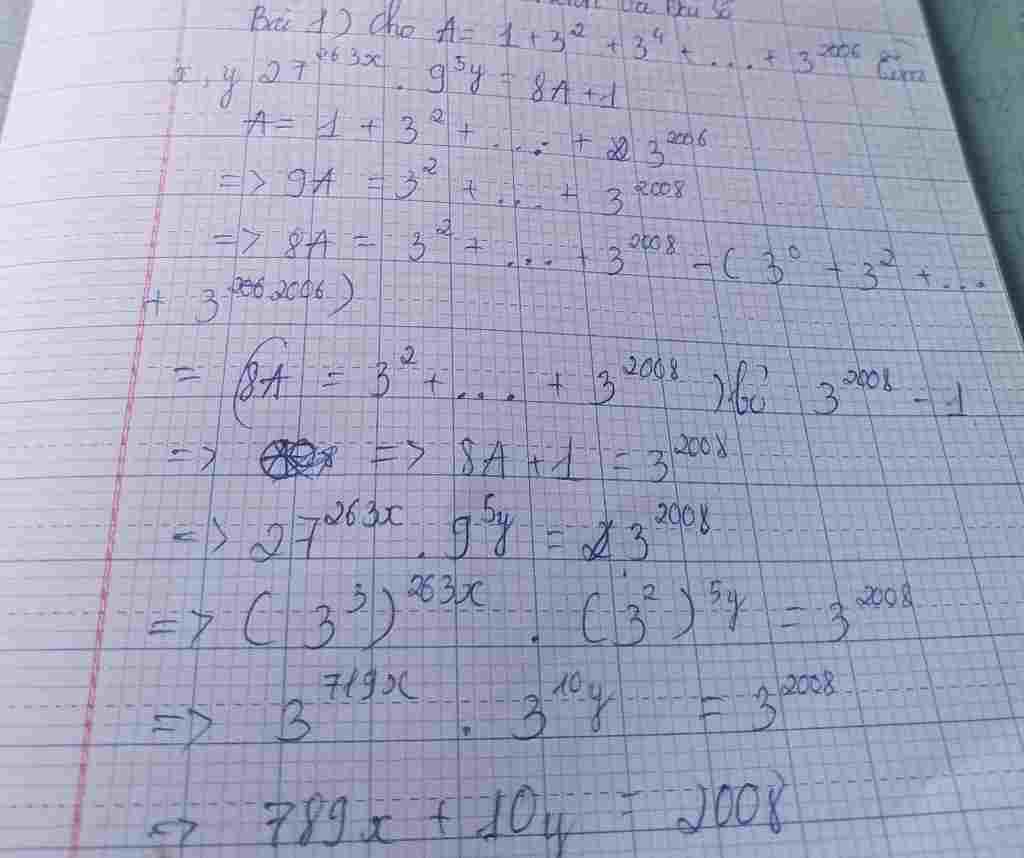 Bài 1) Cho A = 1 + 3^2 + 3^4 + ... + 3^2006 tìm
x, y 27^263x . 9^5y = 8A + 1
A = 1 + 3^2 + ... + 3^2006
=> 9A = 3^2 + ... + 3^2008
=> 8A = 3^2 + ... + 3^2008 - ( 3^0 + 3^2 + ...
+ 3^2006 )
= (8A = 3^2 + ... + 3^2008 ) 3^2008 - 1
=> => 8A + 1 = 3^2008
=> 27^263x . 9^5y = 3^2008
=> ( 3^3 )^263x . ( 3^2 )^5y = 3^2008
=> 3^719x . 3^10y = 3^2008
=> 789x + 10y = 2008